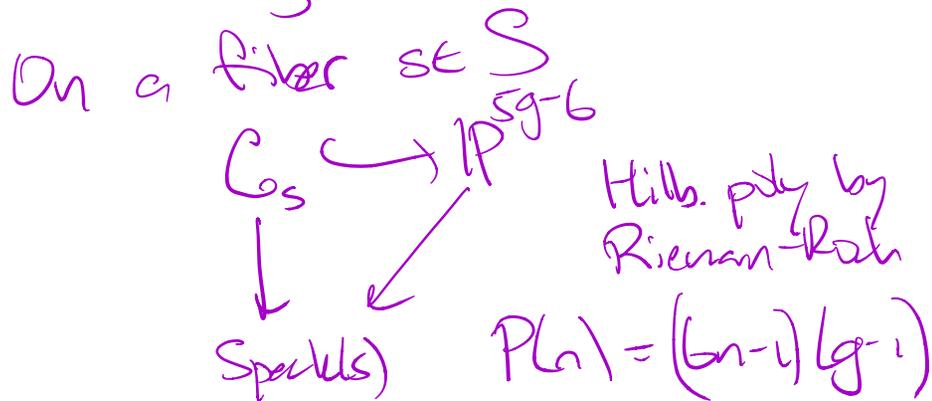 On a fiber s∈S
C_s ↪ P^{5g-6}
Hilb. poly by
Riemann-Roch
Spec k(s)
P(n) = (6n-1)(g-1)